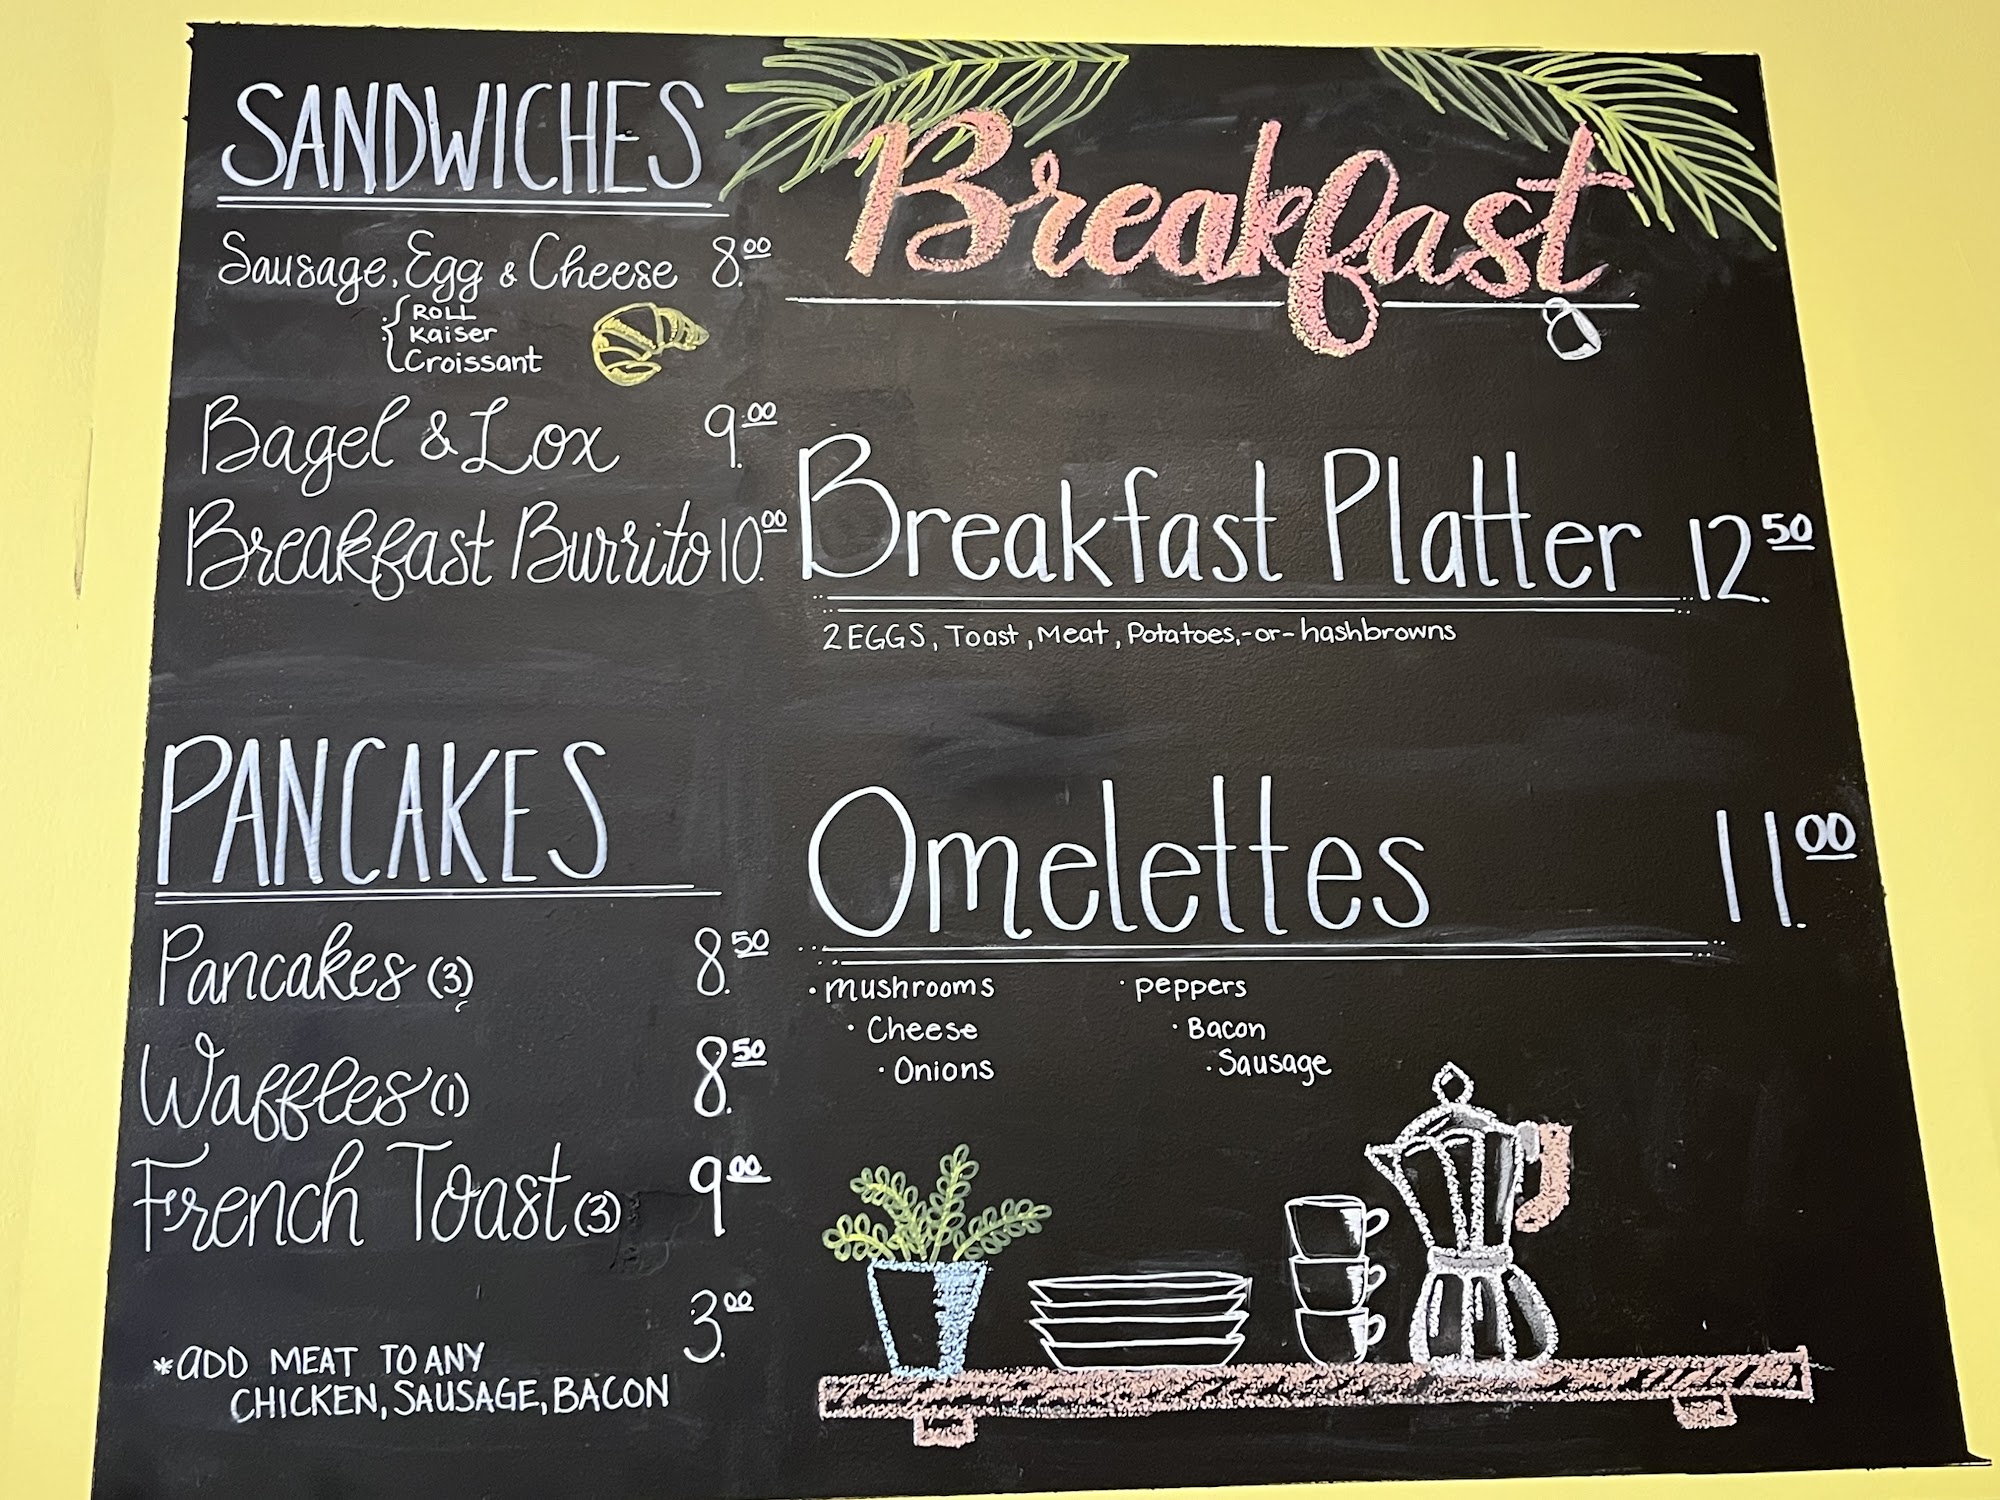 SANDWICHES
Sausage, Egg & Cheese 8.00
ROLL
Kaiser
Croissant
Bagel & Lox 9.00
Breakfast Burrito 10.00
PANCAKES
Pancakes (3) 8.50
Waffles (1) 8.50
French Toast (3) 9.00
3.00
*ADD MEAT TO ANY
CHICKEN, SAUSAGE, BACON
Breakfast
Breakfast Platter 12.50
2 EGGS, Toast, Meat, Potatoes,-or-hashbrowns
Omelettes 11.00
· mushrooms · peppers
· Cheese · Bacon
· Onions · Sausage